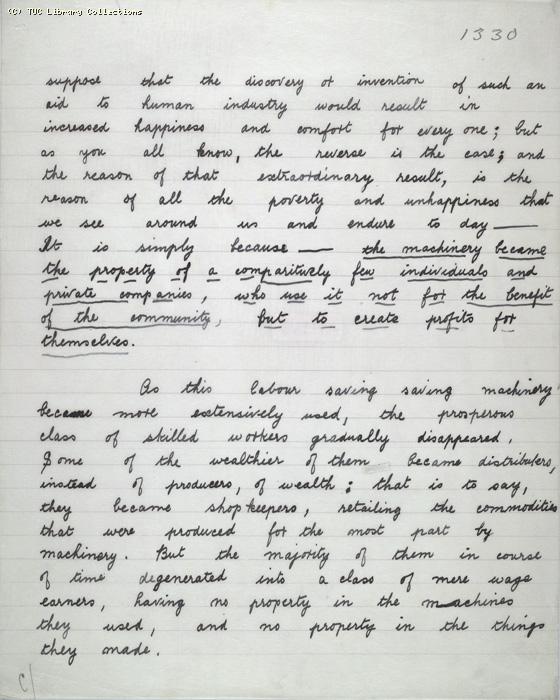 (C) TUC Library Collections
1330
suppose that the discovery or invention of such an
aid to human industry would result in
increased happiness and comfort for every one; but
as you all know, the reverse is the case; and
the reason of that extraordinary result, is the
reason of all the poverty and unhappiness that
we see around us and endure to day ——
It is simply because —— the machinery became
the property of a comparitively few individuals and
private companies, who use it not for the benefit
of the community, but to create profits for
themselves.
As this labour saving saving machinery
became more extensively used, the prosperous
class of skilled workers gradually disappeared.
Some of the wealthier of them became distributers,
instead of producers, of wealth; that is to say,
they became shopkeepers, retailing the commodities
that were produced for the most part by
machinery. But the majority of them in course
of time degenerated into a class of mere wage
earners, having no property in the machines
they used, and no property in the things
they made.
C/